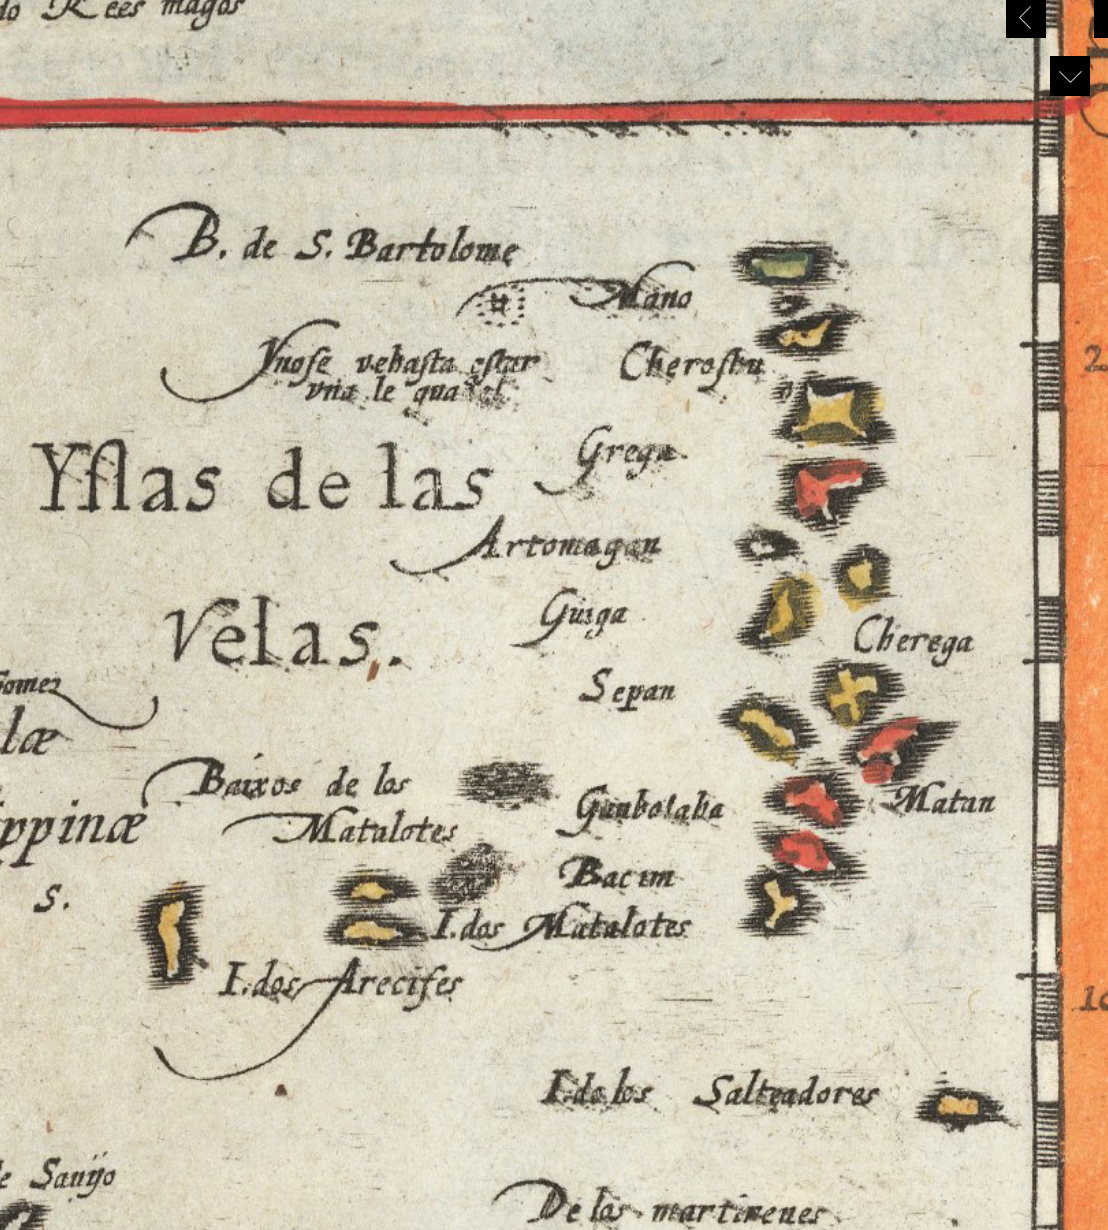 do Rees magos
B. de S. Bartolome
Mano
Ynose vehasta estar
Cheroshu
vna le qua
Grega
Yslas de las
Artomagan
Guiga
Velas.
Cherega
Sepan
Gomez
læ
Baixos de los
Matalotes
Matan
Ganbolaba
ppinæ
Bacim
s.
I. dos Matalotes
I. dos Arecifes
I. de los Salteadores
de Sanijo
De los martirenes
2
10